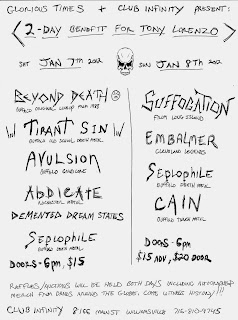 GLORIOUS TIMES + CLUB INFINITY PRESENT:
2-DAY BENEFIT FOR TONY LORENZO
SAT JAN 7TH 2012
BEYOND DEATH
TIRANT SIN
BUFFALO OLD SCHOOL DEATH METAL
AVULSION
BUFFALO GRINDCORE
ABDICATE
ROCHESTER METAL
DEMENTED DREAM STATES
SEPLOPHILE
BUFFALO DEATH METAL
DOORS - 6PM, $15
SUN JAN 8TH 2012
SUFFOCATION
FROM LONG ISLAND
EMBALMER
CLEVELAND LEGENDS
SEPLOPHILE
BUFFALO DEATH METAL
CAIN
BUFFALO THRASH METAL
DOORS - 6PM
$15 ADV, $20 DOOR
RAFFLES/AUCTIONS WILL BE HELD BOTH DAYS INCLUDING AUTOGRAPHED
MERCH FROM BANDS AROUND THE GLOBE! COME WITNESS HISTORY!!!
CLUB INFINITY 8166 MAIN ST WILLIAMSVILLE 716-810-9745